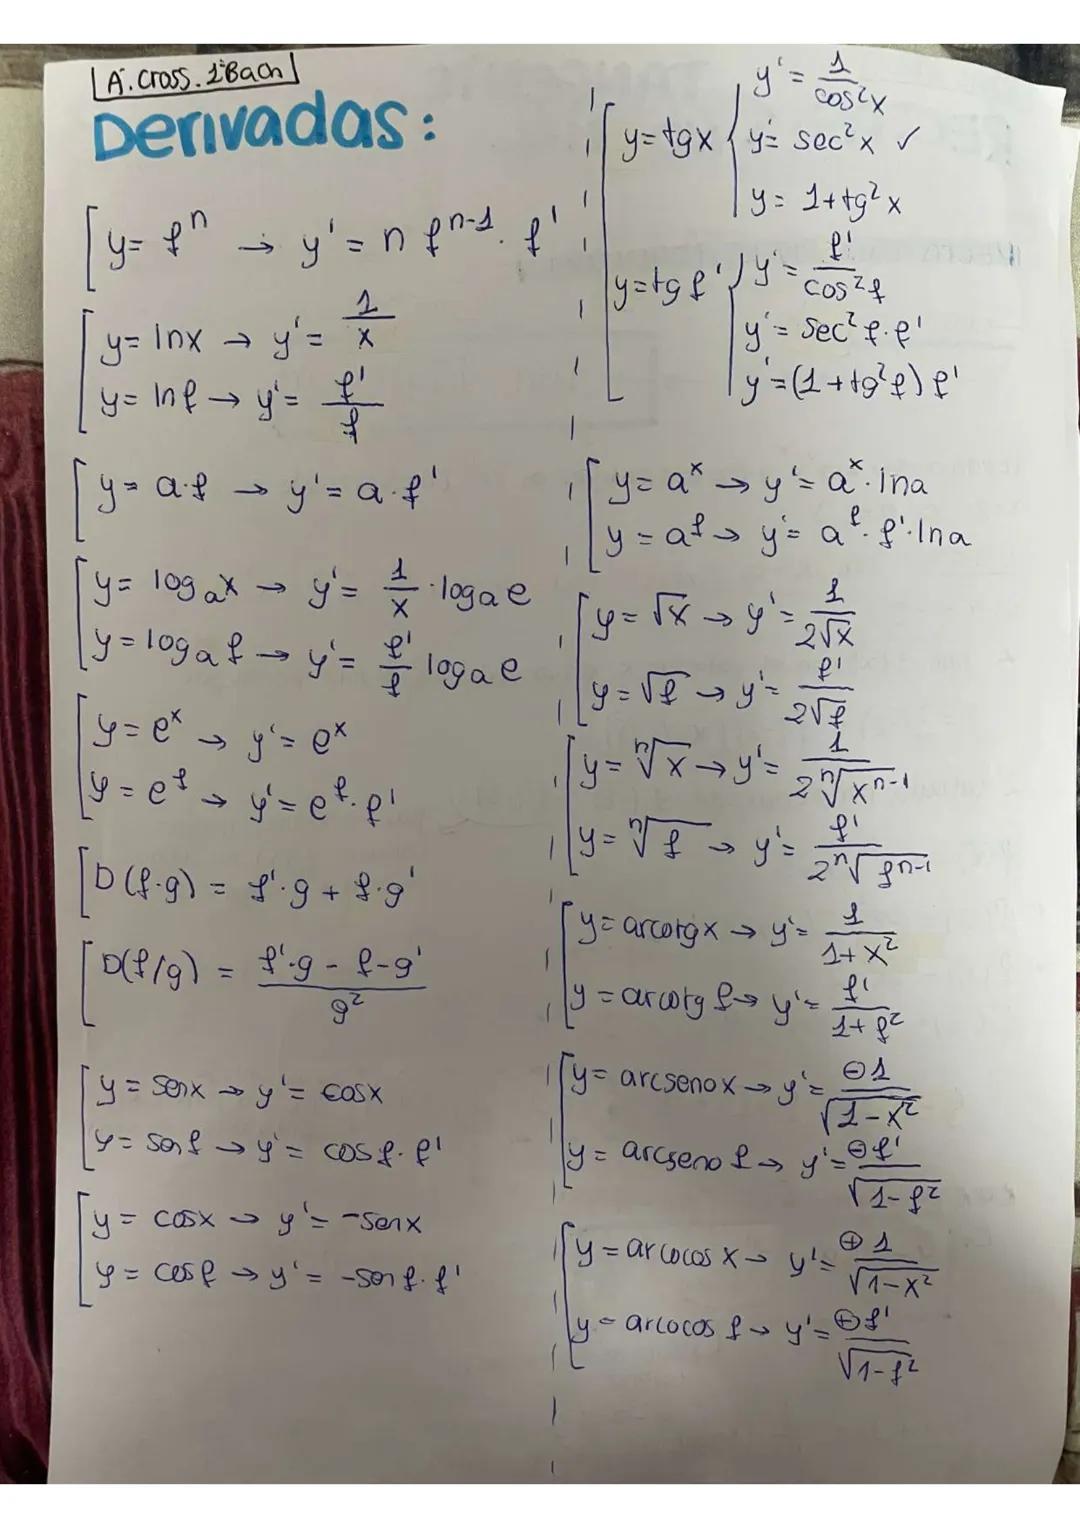 A. Cross. 1ºBach
Derivadas:
y= fⁿ → y' = n fⁿ⁻¹. f'
y= lnx → y'= 1/x
y= lnf → y'= f'/f
y= a·f → y'= a·f'
y= logₐx → y'= 1/x · logₐe
y= logₐf → y'= f'/f logₐe
y= eˣ → y'= eˣ
y= e^f → y'= e^f · f'
D(f·g) = f'·g + f·g'
D(f/g) = (f'·g - f-g')/g²
y= senx → y'= cosx
y= senf → y'= cosf·f'
y= cosx → y'= -senx
y= cosf → y'= -senf·f'
y=tgx { y'= 1/cos²x
y'= sec²x ✓
y= 1+tg²x
y=tgf' { y'= f'/cos²f
y'= sec²f·f'
y'=(1+tg²f) f'
y= aˣ → y'= aˣ·lna
y= a^f → y'= a^f·f'·lna
y= √x → y'= 1/2√x
y= √f → y'= f'/2√f
y= ⁿ√x → y'= 1/2ⁿ√xⁿ⁻¹
y= ⁿ√f → y'= f'/2ⁿ√fⁿ⁻¹
y= arcotgx → y'= 1/1+x²
y= arcotg f → y'= f'/1+f²
y= arcsenox → y'= ⊖1/√1-x²
y= arcseno f → y'= ⊖f'/√1-f²
y= arcocos x → y'= ⊕1/√1-x²
y= arcocos f → y'= ⊕f'/√1-f²